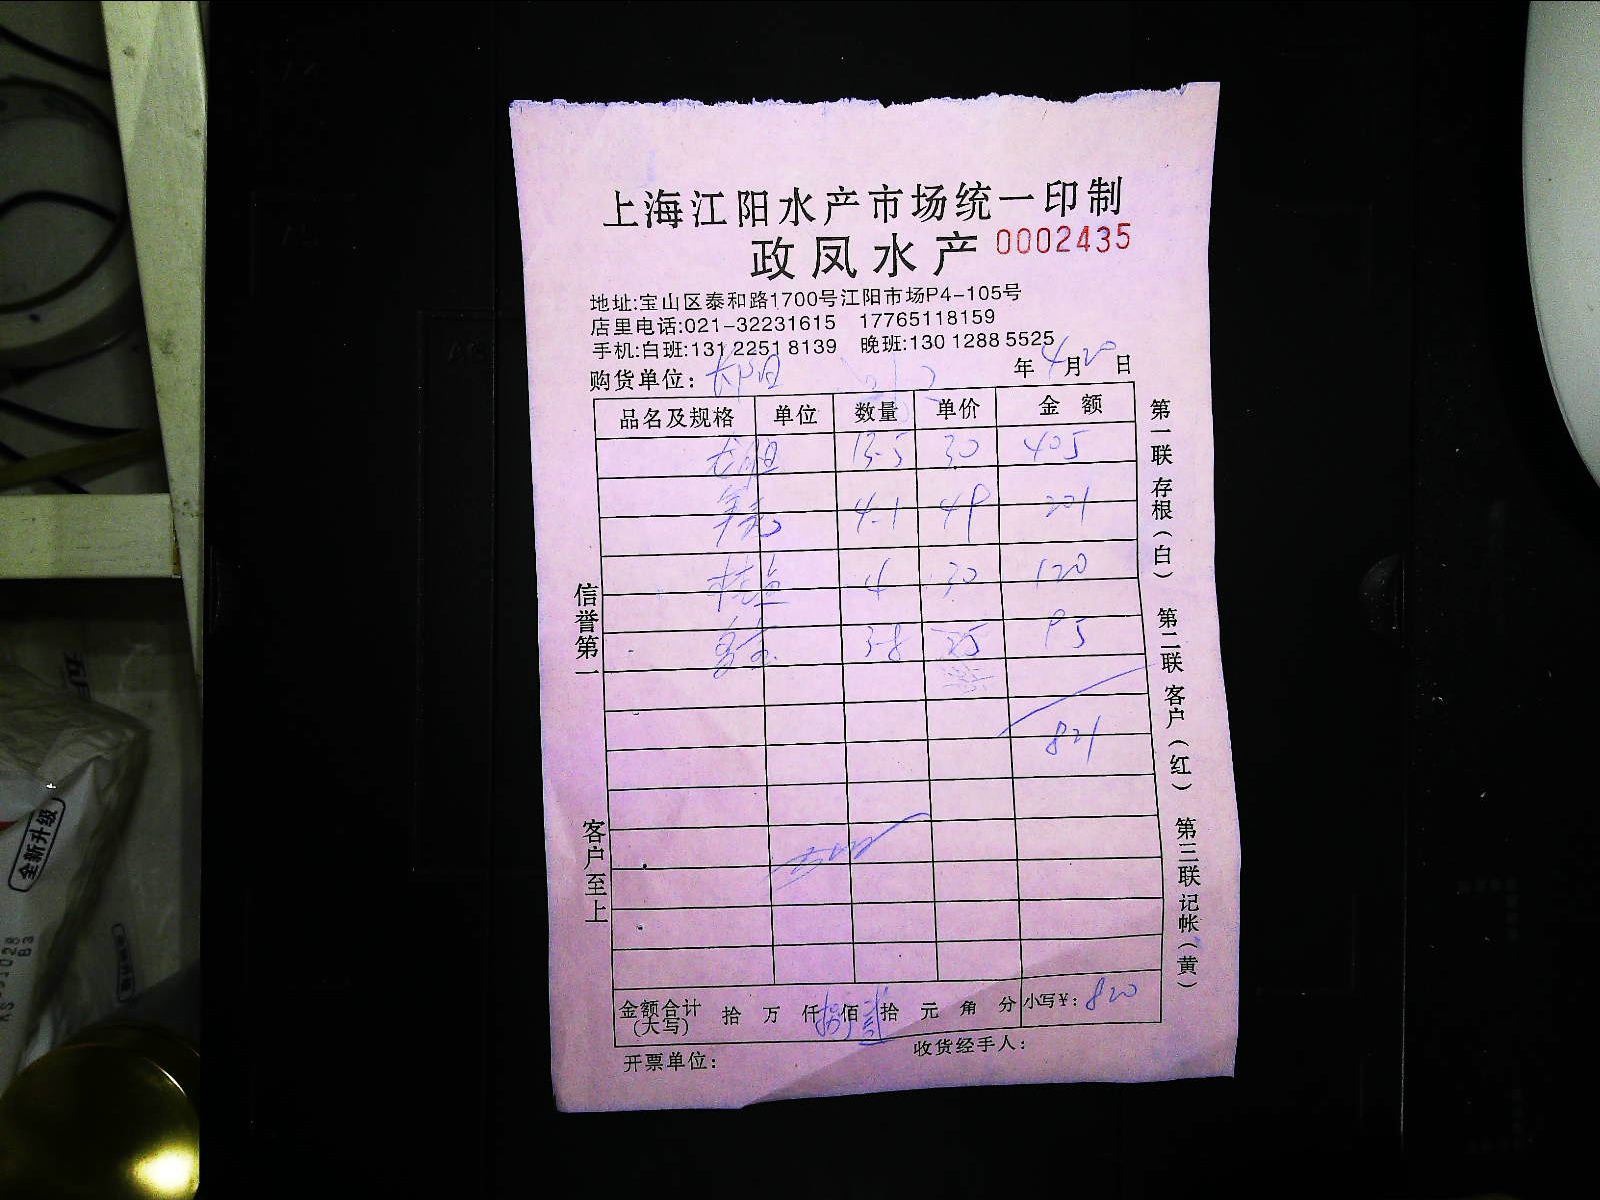 上海江阳水产市场统一印制
政凤水产 0002435
地址:宝山区泰和路1700号江阳市场P4-105号
店里电话:021-32231615 17765118159
手机:白班:131 2251 8139 晚班:130 1288 5525
购货单位: 年 4 月 20 日
品名及规格 单位 数量 单价 金 额
13-5 30 405
4-1 49 201
桂鱼 4 30 120
3-8 25 95
821
金额合计(大写) 拾 万 仟 捌 佰 贰 拾 元 角 分 小写¥: 820
开票单位: 收货经手人:
信誉第一
客户至上
第一联 存根(白) 第二联 客户(红) 第三联 记帐(黄)
全新升级